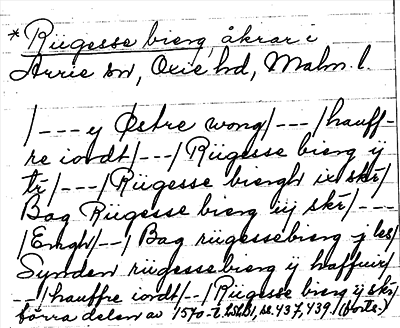 *Rügesse bierg, åkrar i
Arrie sn, Oxie hd, Malm. l.
/---y Østre wong/---/hauff-
re iordt/---/Rügesse bierg ÿ
tr/---/Rügesse biergh ix skr/
Bag Rügesse bierg iij skr/---
/Engh/--/Bag rügessebierg j les/
Synden rügessebierg ÿ haffuir/
--/hauffre iordt/--/Rügesse bierg ÿ skr/
förra delen av 1570-t. LSLB, ss. 437, 439. (forts.)